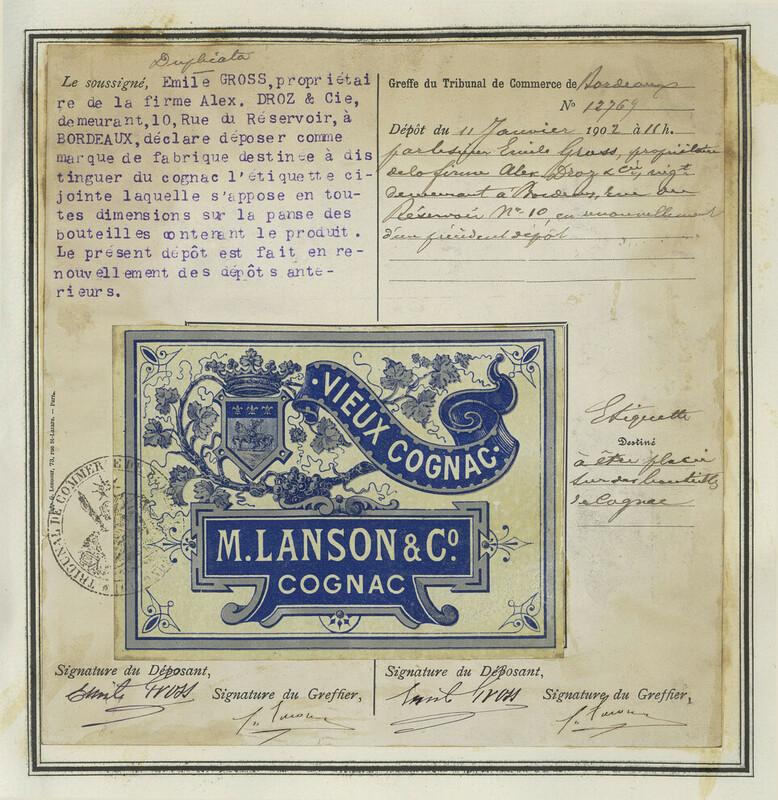 Duplicata
Le soussigné, Emile GROSS, propriétai
re de la firme Alex. DROZ & Cie,
demeurant, 10, Rue du Réservoir, à
BORDEAUX, déclare déposer comme
marque de fabrique destinée à dis
tinguer du cognac l'étiquette ci-
jointe laquelle s'appose en tou-
tes dimensions sur la panse des
bouteilles contenant le produit.
Le présent dépôt est fait en re-
nouvellement des dépôts anté-
rieurs.
Greffe du Tribunal de Commerce de Bordeaux
No 12769
Dépôt du 11 Janvier 1902 à 11 h.
par le sieur Emile Gross, propriétaire
de la firme Alex Droz & Cie,
demeurant à Bordeaux, rue du
Réservoir No 10, en renouvellement
d'un précédent dépôt
VIEUX COGNAC
M. LANSON & Co.
COGNAC
Etiquette
Destiné
à être placée
sur des bouteilles
de Cognac
TRIBUNAL DE COMMERCE DE
Lemour, 73, rue St-Lazare. — Paris.
Signature du Déposant,
Emile Gross
Signature du Greffier,
Signature du Déposant,
Emile Gross
Signature du Greffier,